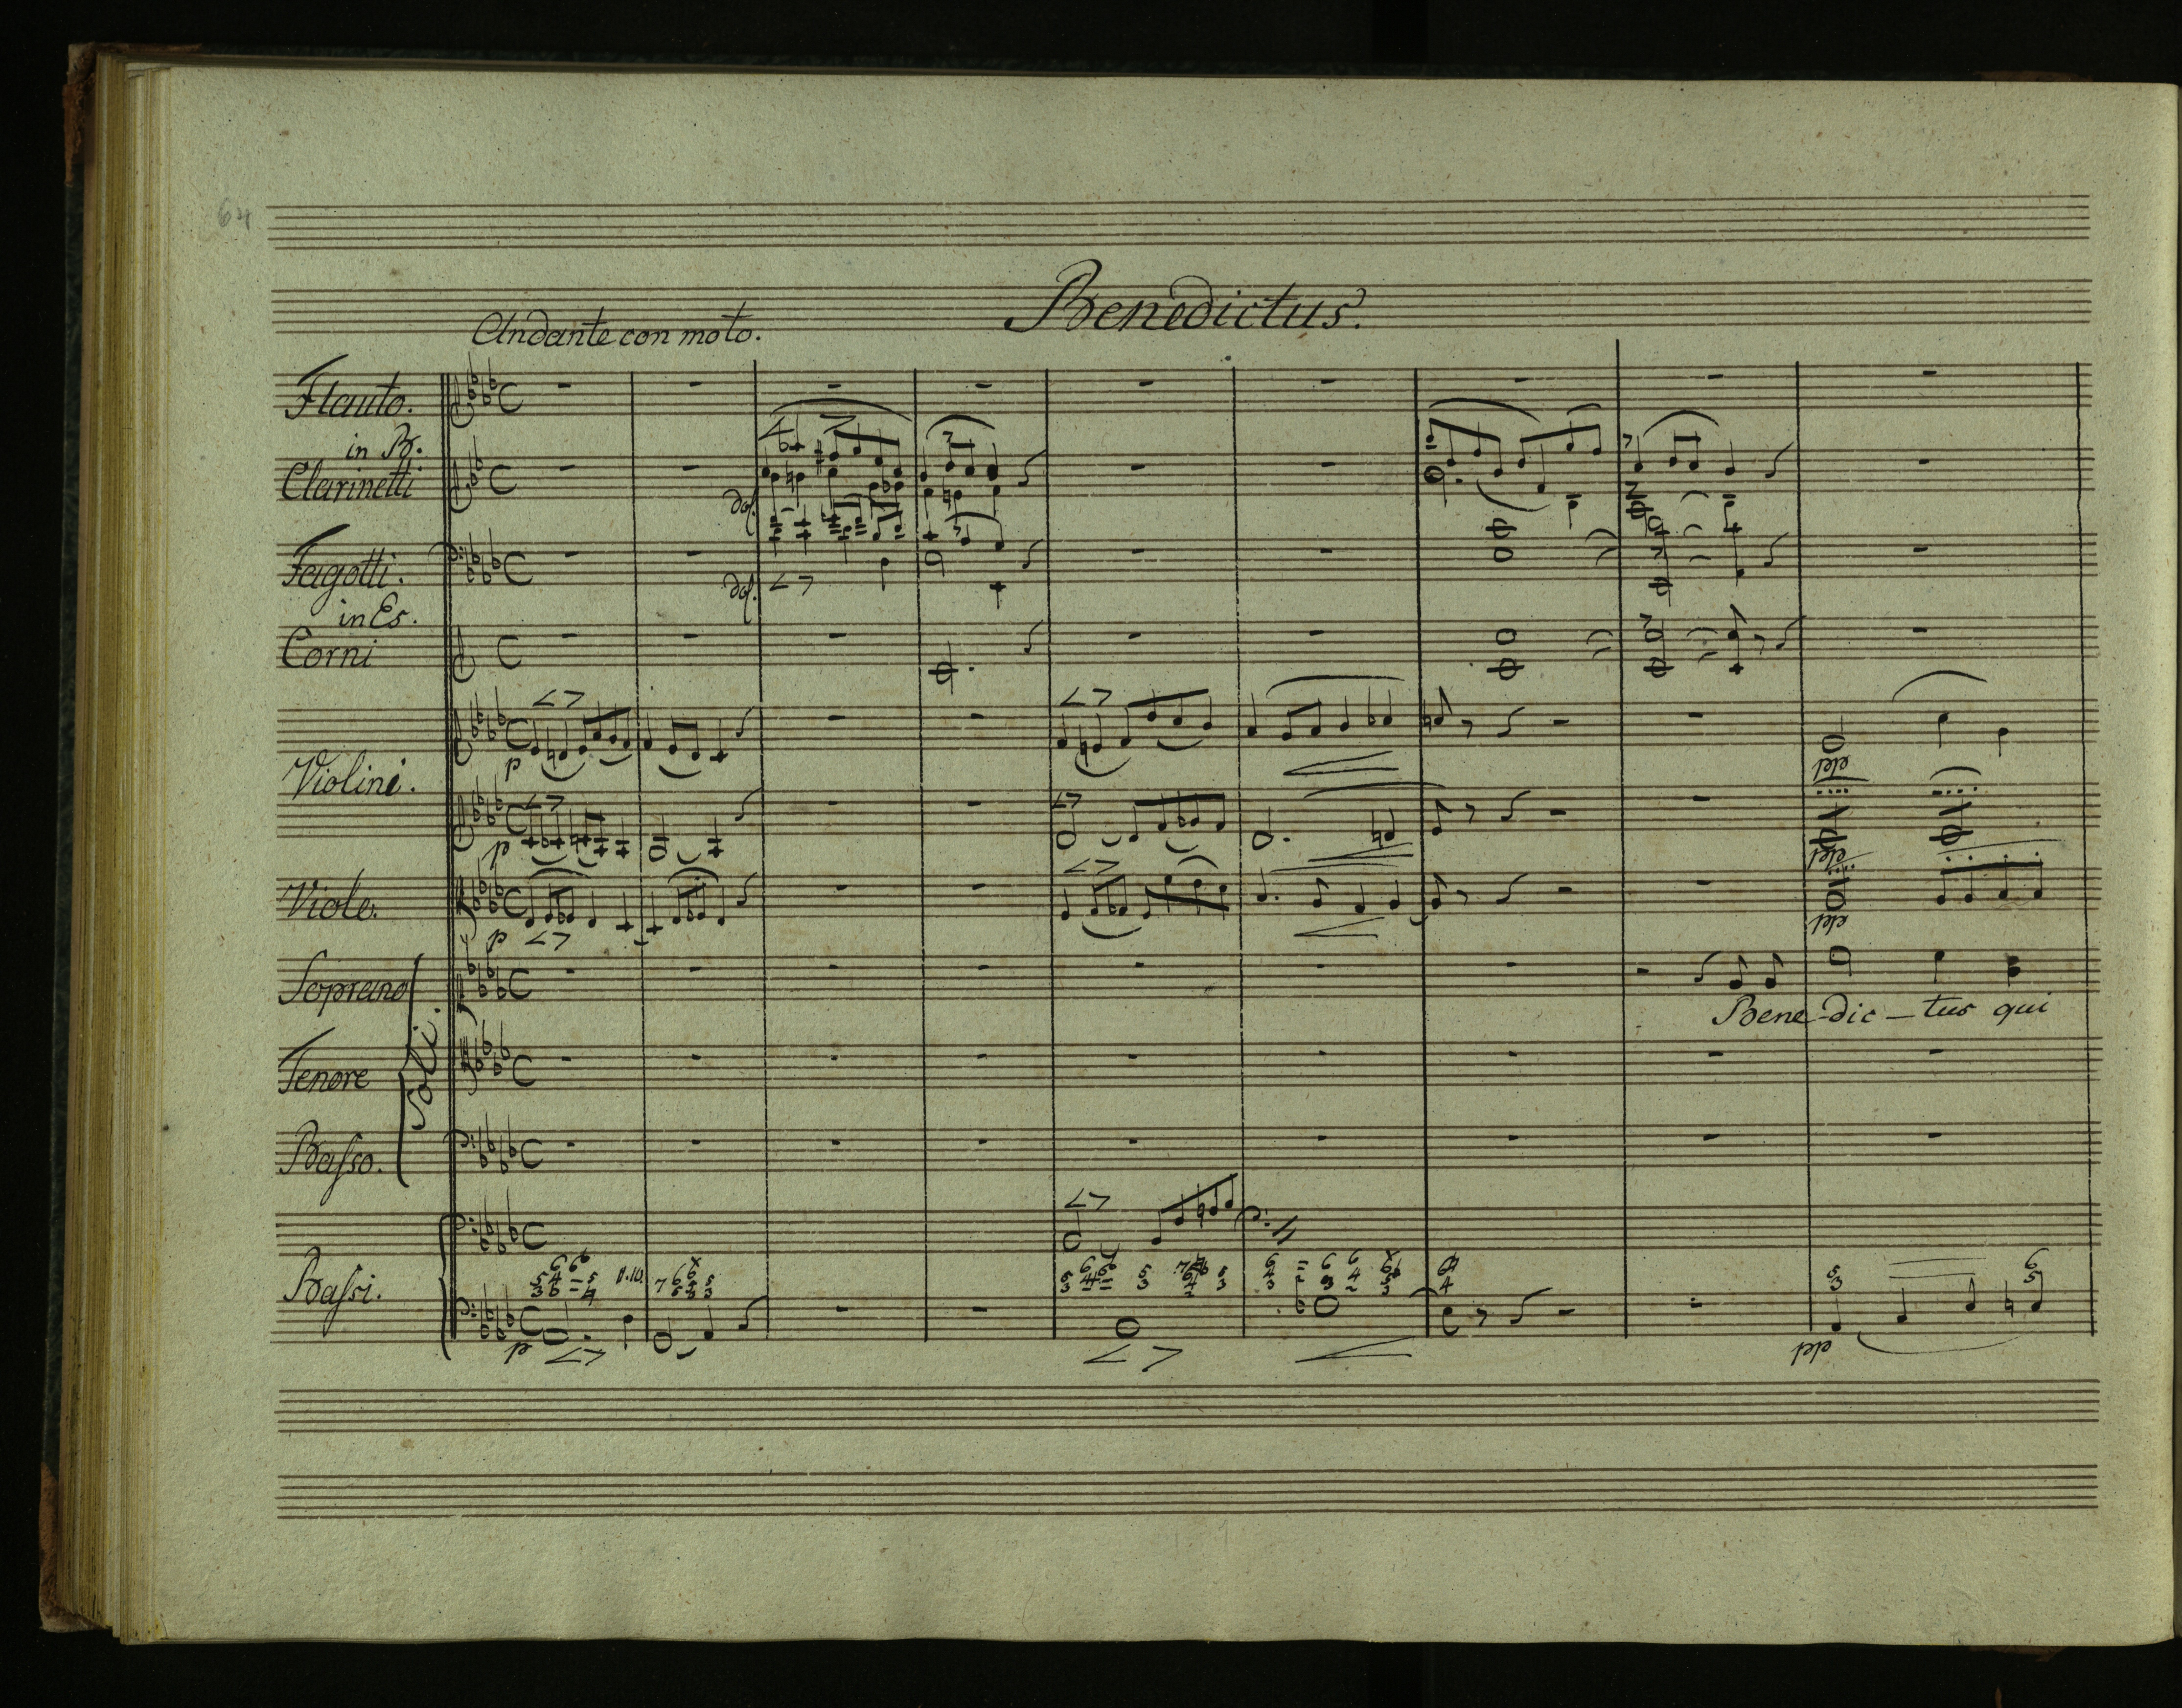 64
Benedictus.
Andante con moto.
Flauto.
in B.
Clarinetti
dol.
Fagotti.
dol.
in Es.
Corni
Violini.
p
p
Viole.
p
Soprano
Bene-dic-tus qui
Soli.
Tenore
Basso.
Bassi.
p
pp